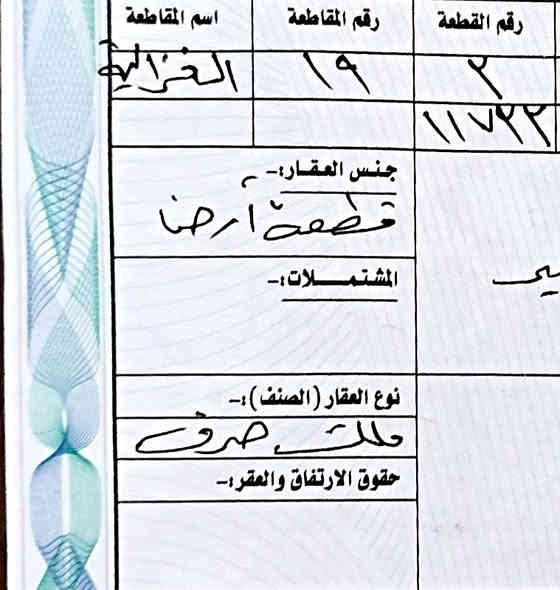 رقم القطعة رقم المقاطعة اسم المقاطعة
٣ ١٩ الغزالية
١١٧٢٣
جنس العقار:-
قطعة أرض
المشتملات:-
نوع العقار (الصنف):-
ملك صرف
حقوق الارتفاق والعقر:-